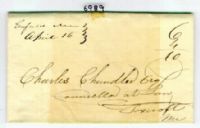 6989
April 16
6
10
Charles Chandler Esq
Counsellor at Law
Foxcroft
Me